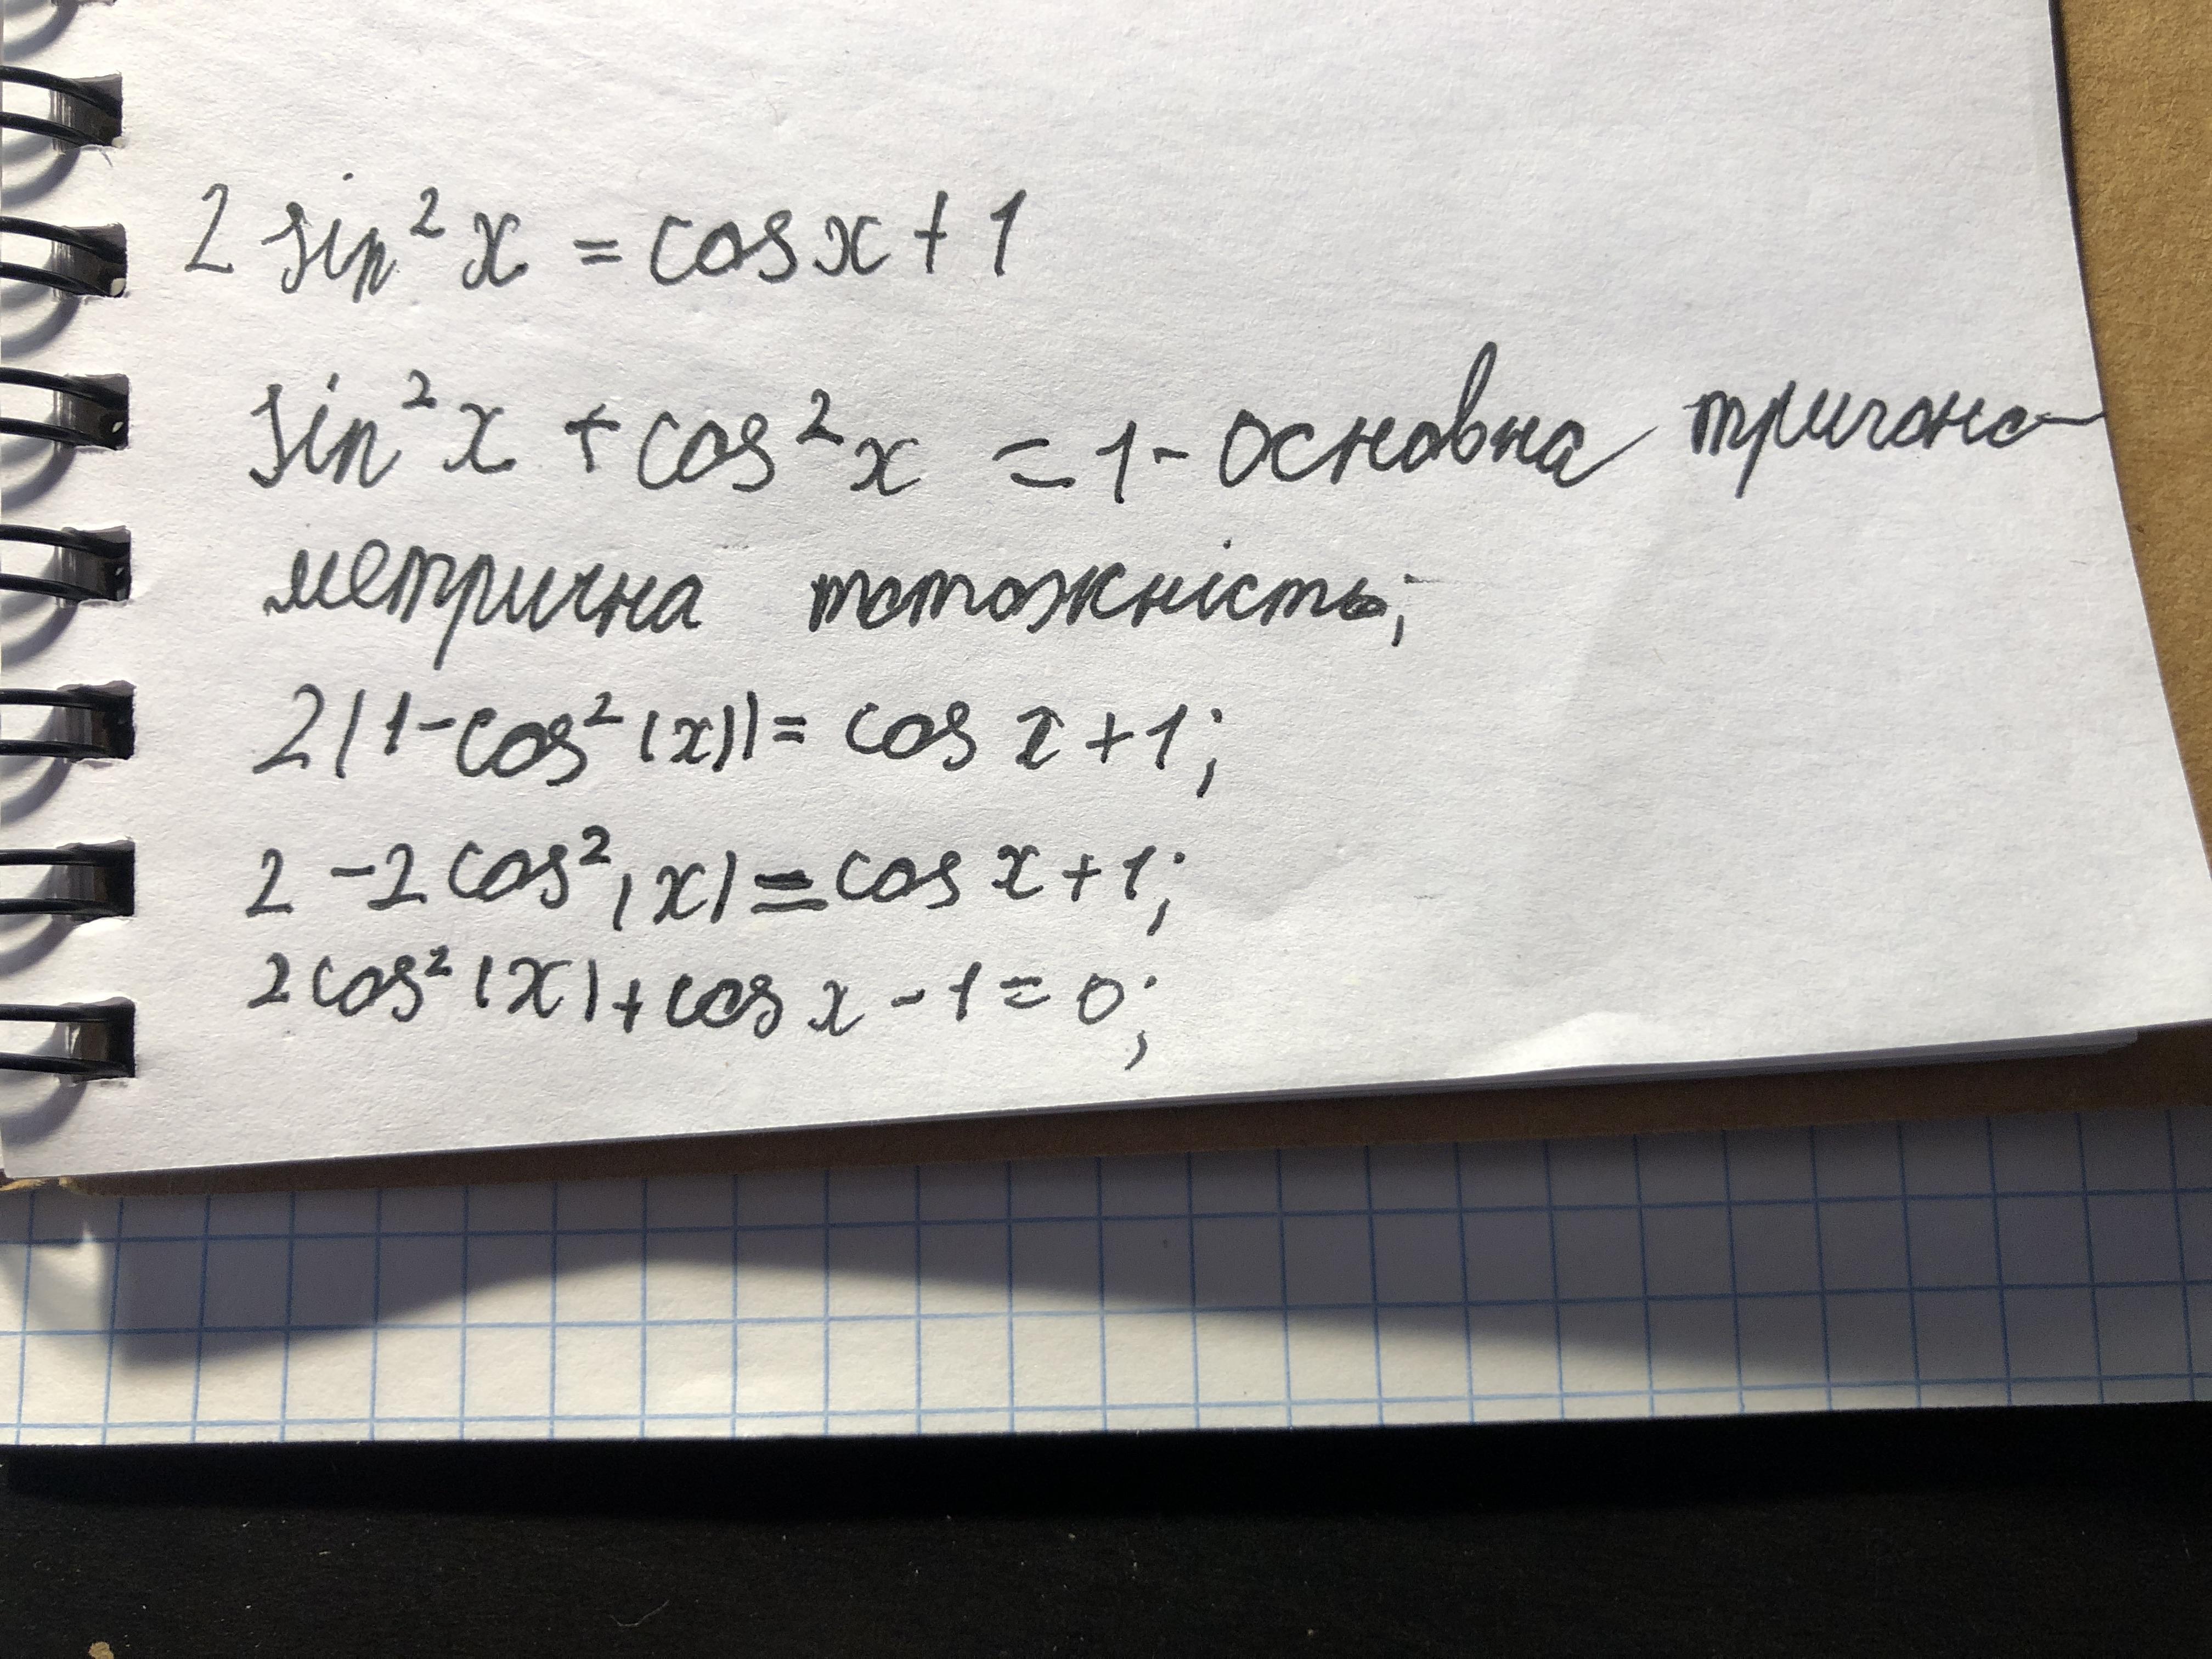 2 sin² x = cos x + 1
sin² x + cos² x = 1 - основна тригоно-
метрична тотожність;
2(1 - cos² (x)) = cos x + 1;
2 - 2 cos² (x) = cos x + 1;
2 cos² (x) + cos x - 1 = 0;